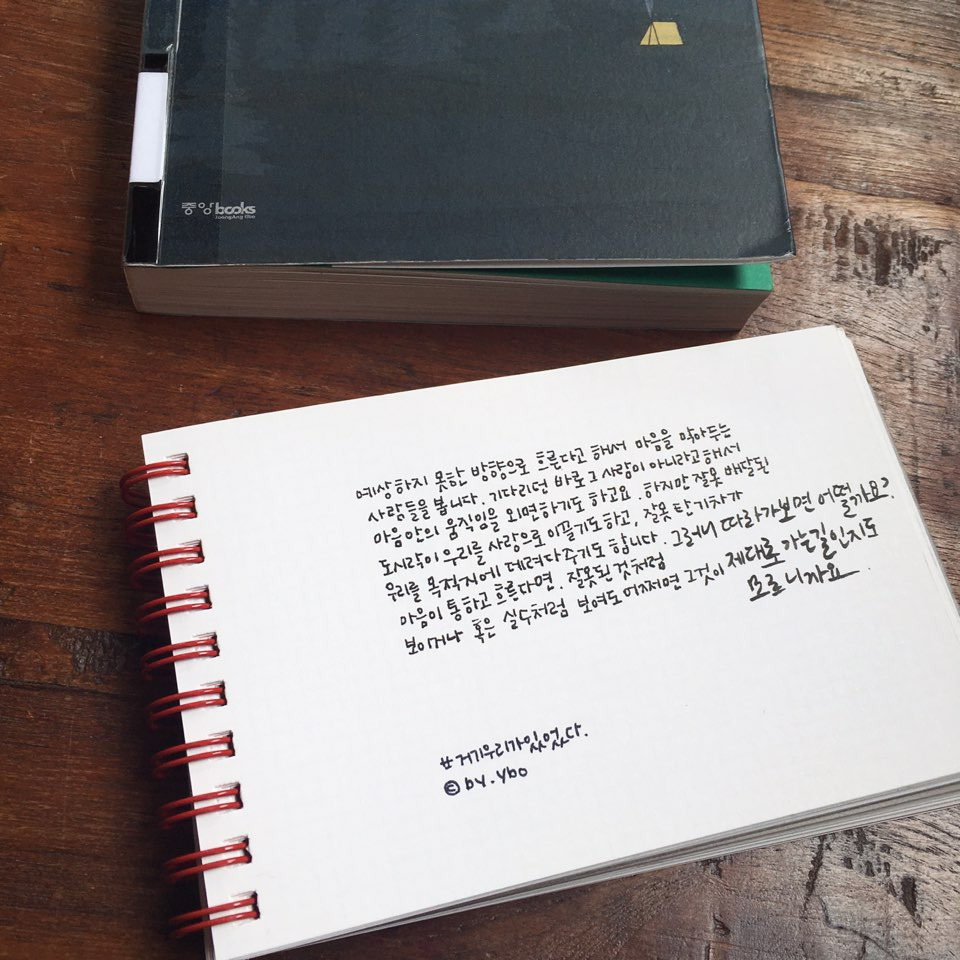 중앙books
JoongAng Ilbo
예상하지 못한 방향으로 흐른다고 해서 마음을 막아두는
사람들을 봅니다. 기다리던 바로 그 사람이 아니라고해서
마음안의 움직임을 외면하기도 하고요. 하지만 잘못 배달된
도시락이 우리를 사랑으로 이끌기도하고, 잘못 탄 기차가
우리를 목적지에 데려다주기도 합니다. 그러니 따라가보면 어떨까요?
마음이 통하고 흐른다면. 잘못된 것처럼
보이거나 혹은 실수처럼 보여도 어쩌면 그것이 제대로 가는길인지도
모르니까요.
#거기우리가있었다.
© by. ybo